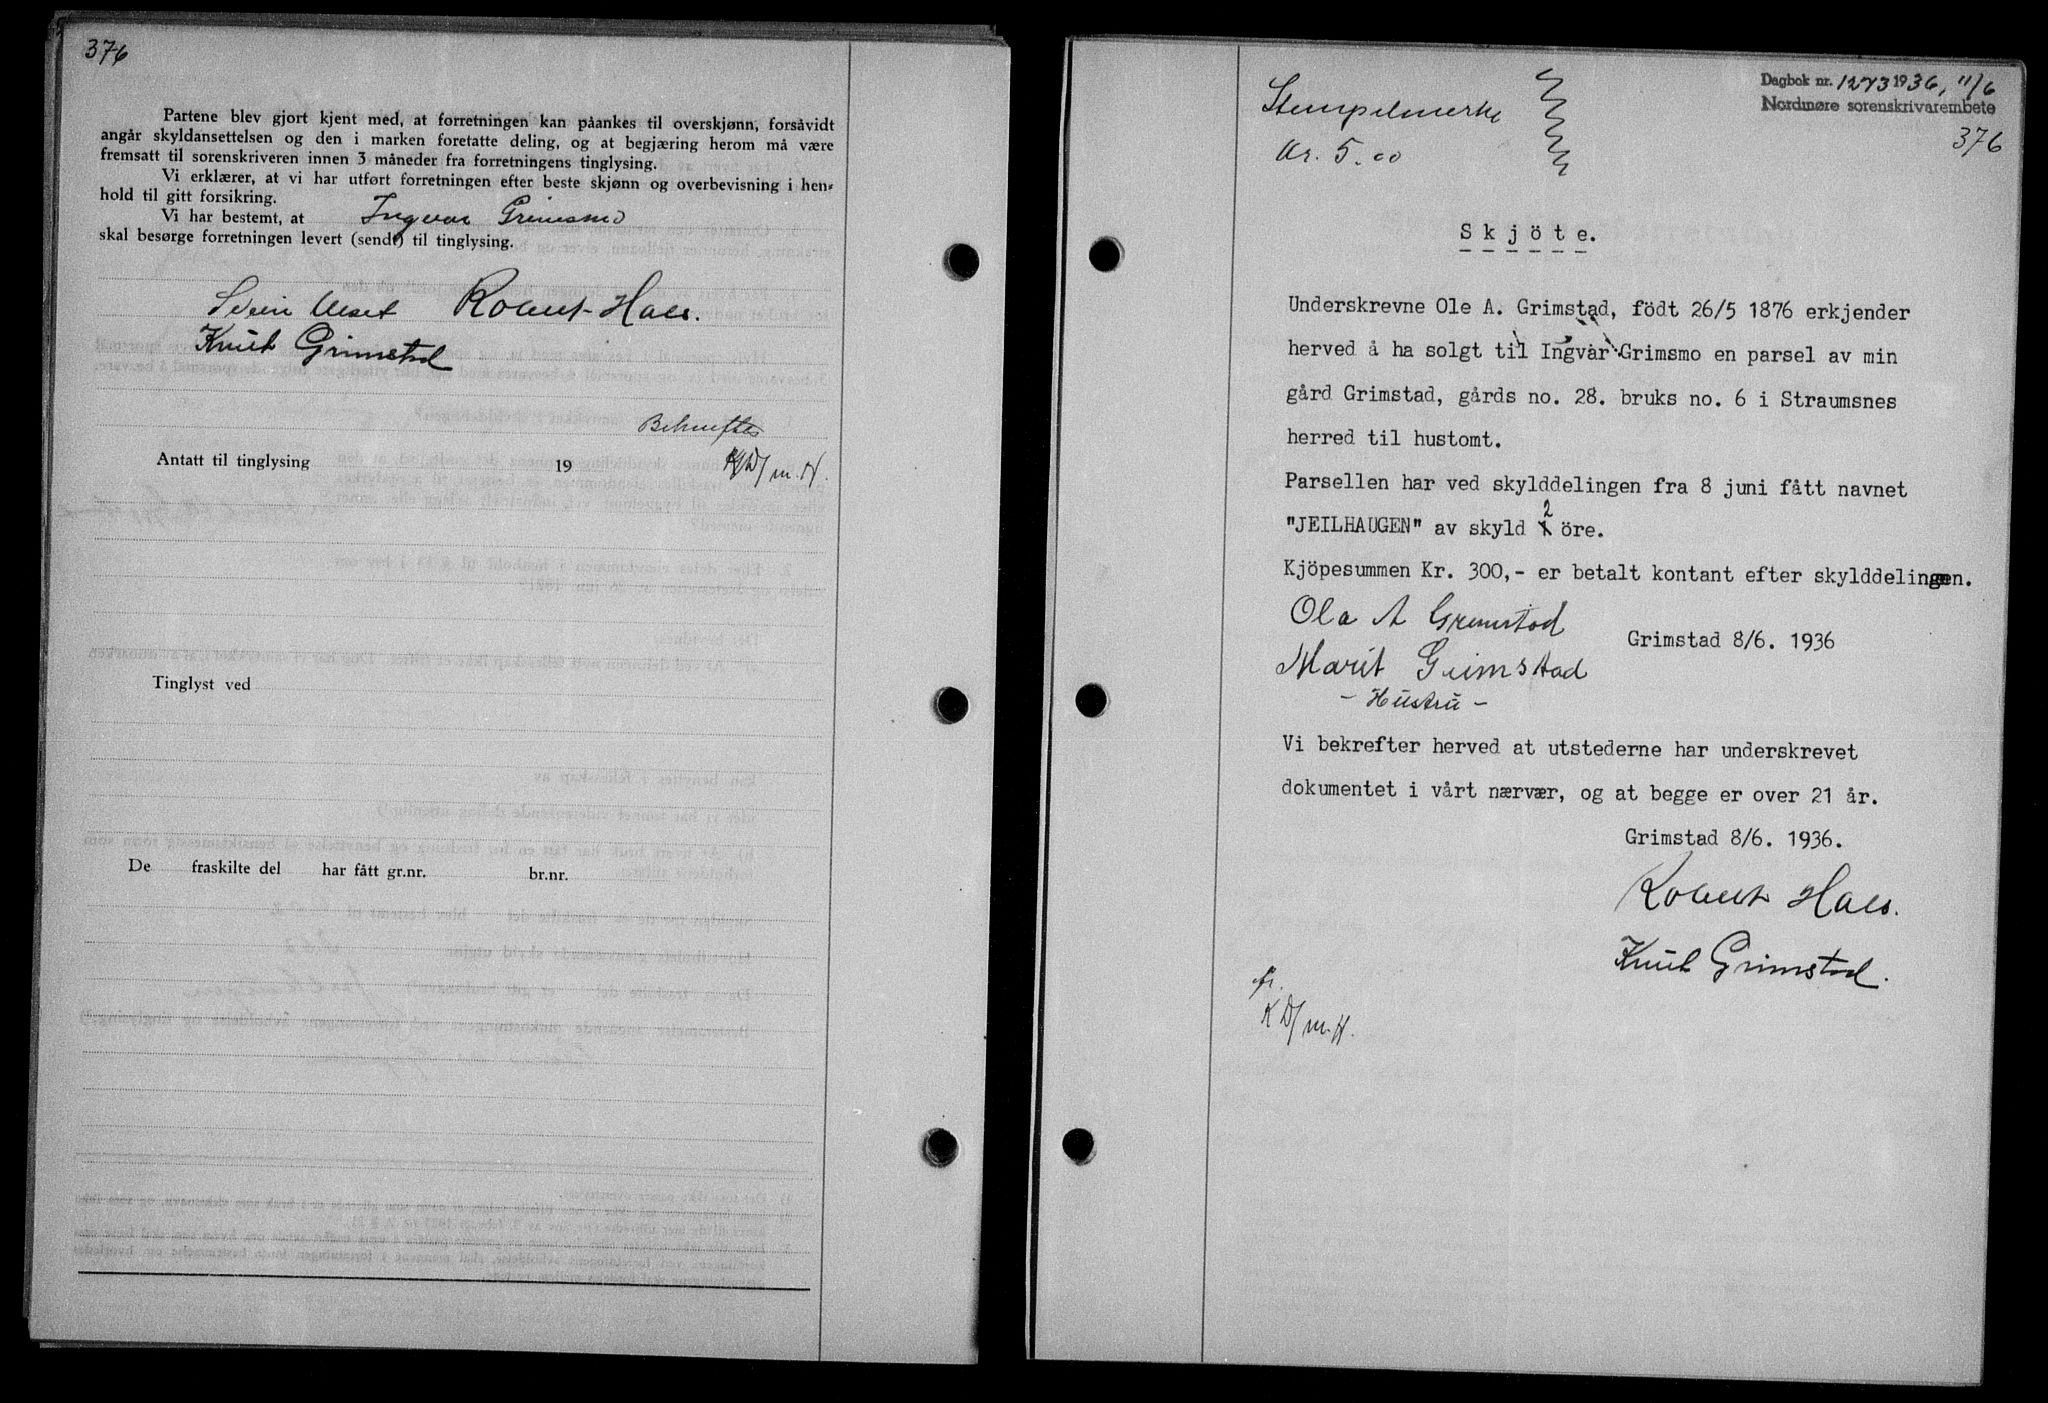 376
Partene blev gjort kjent med, at forretningen kan påankes til overskjønn, forsåvidt
angår skyldansettelsen og den i marken foretatte deling, og at begjæring herom må være
fremsatt til sorenskriveren innen 3 måneder fra forretningens tinglysing.
Vi erklærer, at vi har utført forretningen efter beste skjønn og overbevisning i hen-
hold til gitt forsikring.
Vi har bestemt, at Ingvar Grimsmo
skal besørge forretningen levert (sendt) til tinglysing.
Robert Hals.
Knut Grimstad
Bekreftes
Antatt til tinglysing 19 KD/m.H.
Tinglyst ved
De fraskilte del har fått gr.nr. br.nr.
Dagbok nr. 1273 1936, 11/6
Nordmøre sorenskrivarembete
376
Stempelmerke
Kr. 5.00
Skjöte.
Underskrevne Ole A. Grimstad, födt 26/5 1876 erkjender
herved å ha solgt til Ingvar Grimsmo en parsel av min
gård Grimstad, gårds no. 28. bruks no. 6 i Straumsnes
herred til hustomt.
Parsellen har ved skylddelingen fra 8 juni fått navnet
"JEILHAUGEN" av skyld 2 öre.
Kjöpesummen Kr. 300,- er betalt kontant efter skylddelingen.
Ola A Grimstad
Grimstad 8/6. 1936
Marit Grimstad
- Hustru -
Vi bekrefter herved at utstederne har underskrevet
dokumentet i vårt nærvær, og at begge er over 21 år.
Grimstad 8/6. 1936.
Robert Hals.
Knut Grimstad.
KD/m.H.